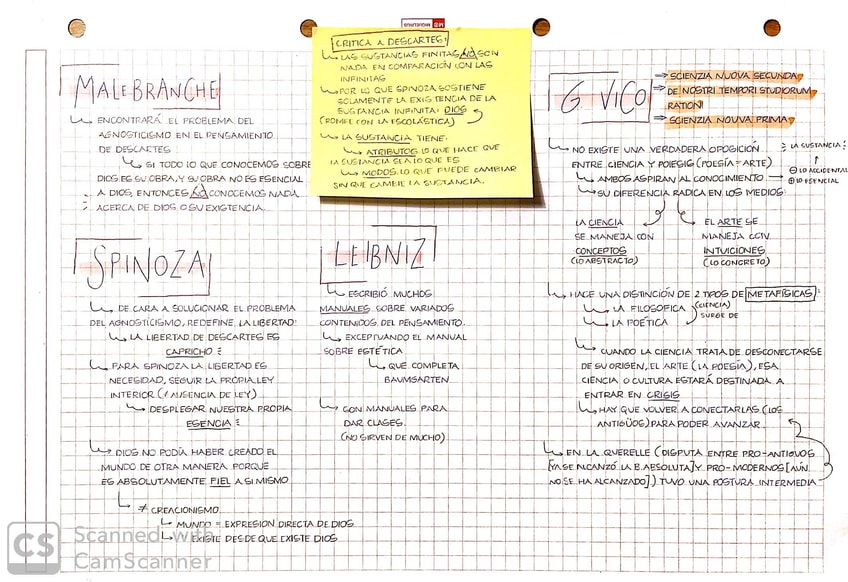 MALEBRANCHE
↳ ENCONTRARÁ EL PROBLEMA DEL
AGNOSTICISMO EN EL PENSAMIENTO
DE DESCARTES
↳ SI TODO LO QUE CONOCEMOS SOBRE
DIOS ES SU OBRA, Y SU OBRA NO ES ESENCIAL
A DIOS, ENTONCES NO CONOCEMOS NADA
ACERCA DE DIOS O SU EXISTENCIA.
CRITICA A DESCARTES:
↳ LAS SUSTANCIAS FINITAS NO SON
NADA EN COMPARACIÓN CON LAS
INFINITAS
↳ POR LO QUE SPINOZA SOSTIENE
SOLAMENTE LA EXISTENCIA DE LA
SUSTANCIA INFINITA: DIOS
(ROMPE CON LA ESCOLÁSTICA)
↳ LA SUSTANCIA TIENE:
↳ ATRIBUTOS: LO QUE HACE QUE
LA SUSTANCIA SEA LO QUE ES
↳ MODOS: LO QUE PUEDE CAMBIAR
SIN QUE CAMBIE LA SUSTANCIA.
SPINOZA
↳ DE CARA A SOLUCIONAR EL PROBLEMA
DEL AGNOSTICISMO, REDEFINE LA LIBERTAD:
↳ LA LIBERTAD DE DESCARTES ES
CAPRICHO
↳ PARA SPINOZA LA LIBERTAD ES
NECESIDAD, SEGUIR LA PROPIA LEY
INTERIOR (≠ AUSENCIA DE LEY)
↳ DESPLEGAR NUESTRA PROPIA
ESENCIA
↳ DIOS NO PODÍA HABER CREADO EL
MUNDO DE OTRA MANERA PORQUE
ES ABSOLUTAMENTE FIEL A SI MISMO
↳ ≠ CREACIONISMO
↳ MUNDO = EXPRESION DIRECTA DE DIOS
↳ EXISTE DESDE QUE EXISTE DIOS
LEIBNIZ
↳ ESCRIBIÓ MUCHOS
MANUALES SOBRE VARIADOS
CONTENIDOS DEL PENSAMIENTO.
↳ EXCEPTUANDO EL MANUAL
SOBRE ESTÉTICA
↳ QUE COMPLETA
BAUMGARTEN
↳ SON MANUALES PARA
DAR CLASES.
(NO SIRVEN DE MUCHO)
G VICO
→ SCIENZIA NUOVA SECUNDA
→ DE NOSTRI TEMPORI STUDIORUM
RATIONI
→ SCIENZIA NOUVA PRIMA
↳ NO EXISTE UNA VERDADERA OPOSICIÓN
ENTRE CIENCIA Y POIESIS (POESÍA = ARTE)
↳ AMBOS ASPIRAN AL CONOCIMIENTO
LA SUSTANCIA
⊖ LO ACCIDENTAL
⊕ LO ESENCIAL
↳ SU DIFERENCIA RADICA EN LOS MEDIOS:
LA CIENCIA
SE MANEJA CON
CONCEPTOS
(LO ABSTRACTO)
EL ARTE SE
MANEJA CON
INTUICIONES
(LO CONCRETO)
↳ HACE UNA DISTINCIÓN DE 2 TIPOS DE METAFÍSICAS:
↳ LA FILOSOFICA (CIENCIA)
SURGE DE
↳ LA POÉTICA
↳ CUANDO LA CIENCIA TRATA DE DESCONECTARSE
DE SU ORIGEN, EL ARTE (LA POESÍA), ESA
CIENCIA O CULTURA ESTARÁ DESTINADA A
ENTRAR EN CRISIS
↳ HAY QUE VOLVER A CONECTARLAS (LOS
ANTIGÜOS) PARA PODER AVANZAR.
↳ EN LA QUERELLE (DISPUTA ENTRE PRO-ANTIGUOS
[YA SE ALCANZÓ LA B. ABSOLUTA] Y PRO-MODERNOS [AÚN
NO SE HA ALCANZADO]) TUVO UNA POSTURA INTERMEDIA
CS Scanned with
CamScanner